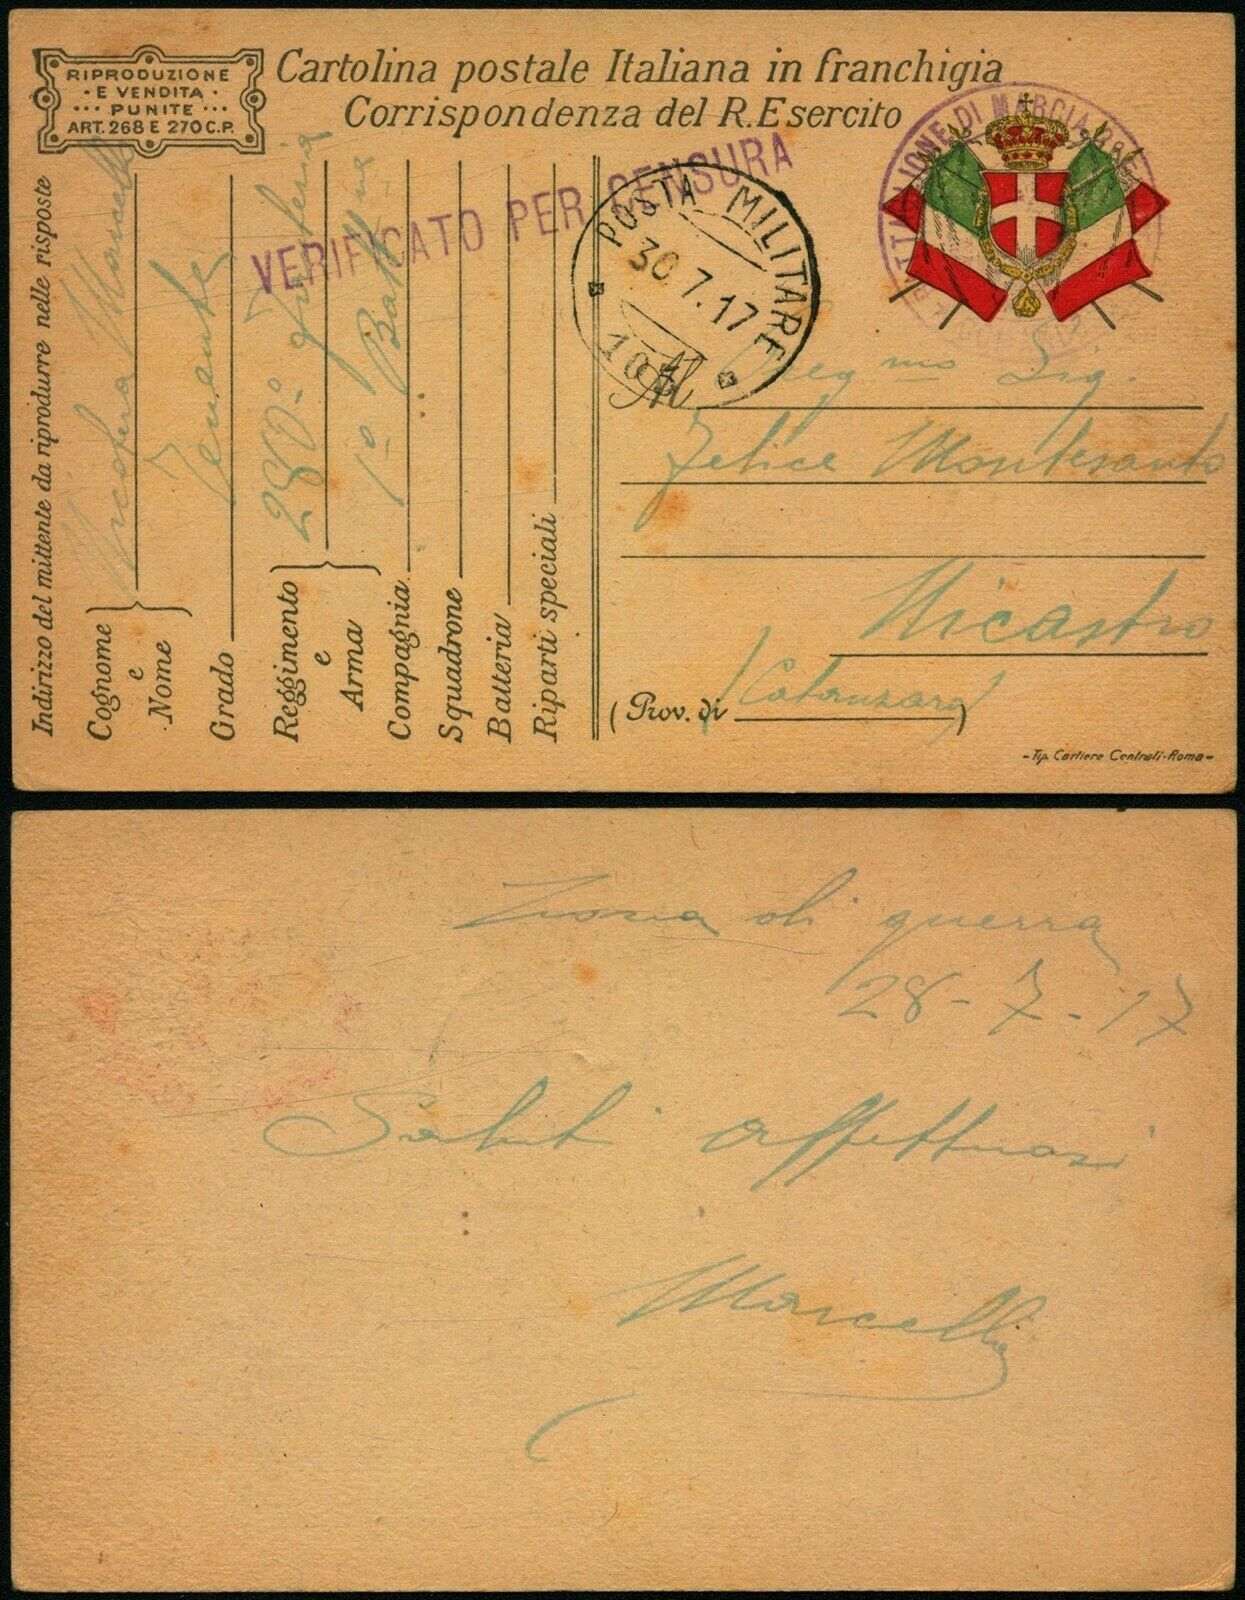 RIPRODUZIONE
· E VENDITA ·
··· PUNITE ···
ART. 268 E 270 C.P.
Cartolina postale Italiana in franchigia
Corrispondenza del R. Esercito
BATTAGLIONE DI MARCIA
VERIFICATO PER CENSURA
POSTA MILITARE
30.7.17
Indirizzo del mittente da riprodurre nelle risposte
Cognome e Nome
Marcello
Grado
Tenente
Reggimento e Arma
Fanteria
Compagnia
1º
Squadrone
Batteria
Riparti speciali
Preg mo Sig.
Felice Montesanto
Nicastro
(Prov. di Catanzaro)
- Tip. Cartiere Centrali - Roma -
Zona di guerra
28-7-17
Saluti affettuosi
Marcello